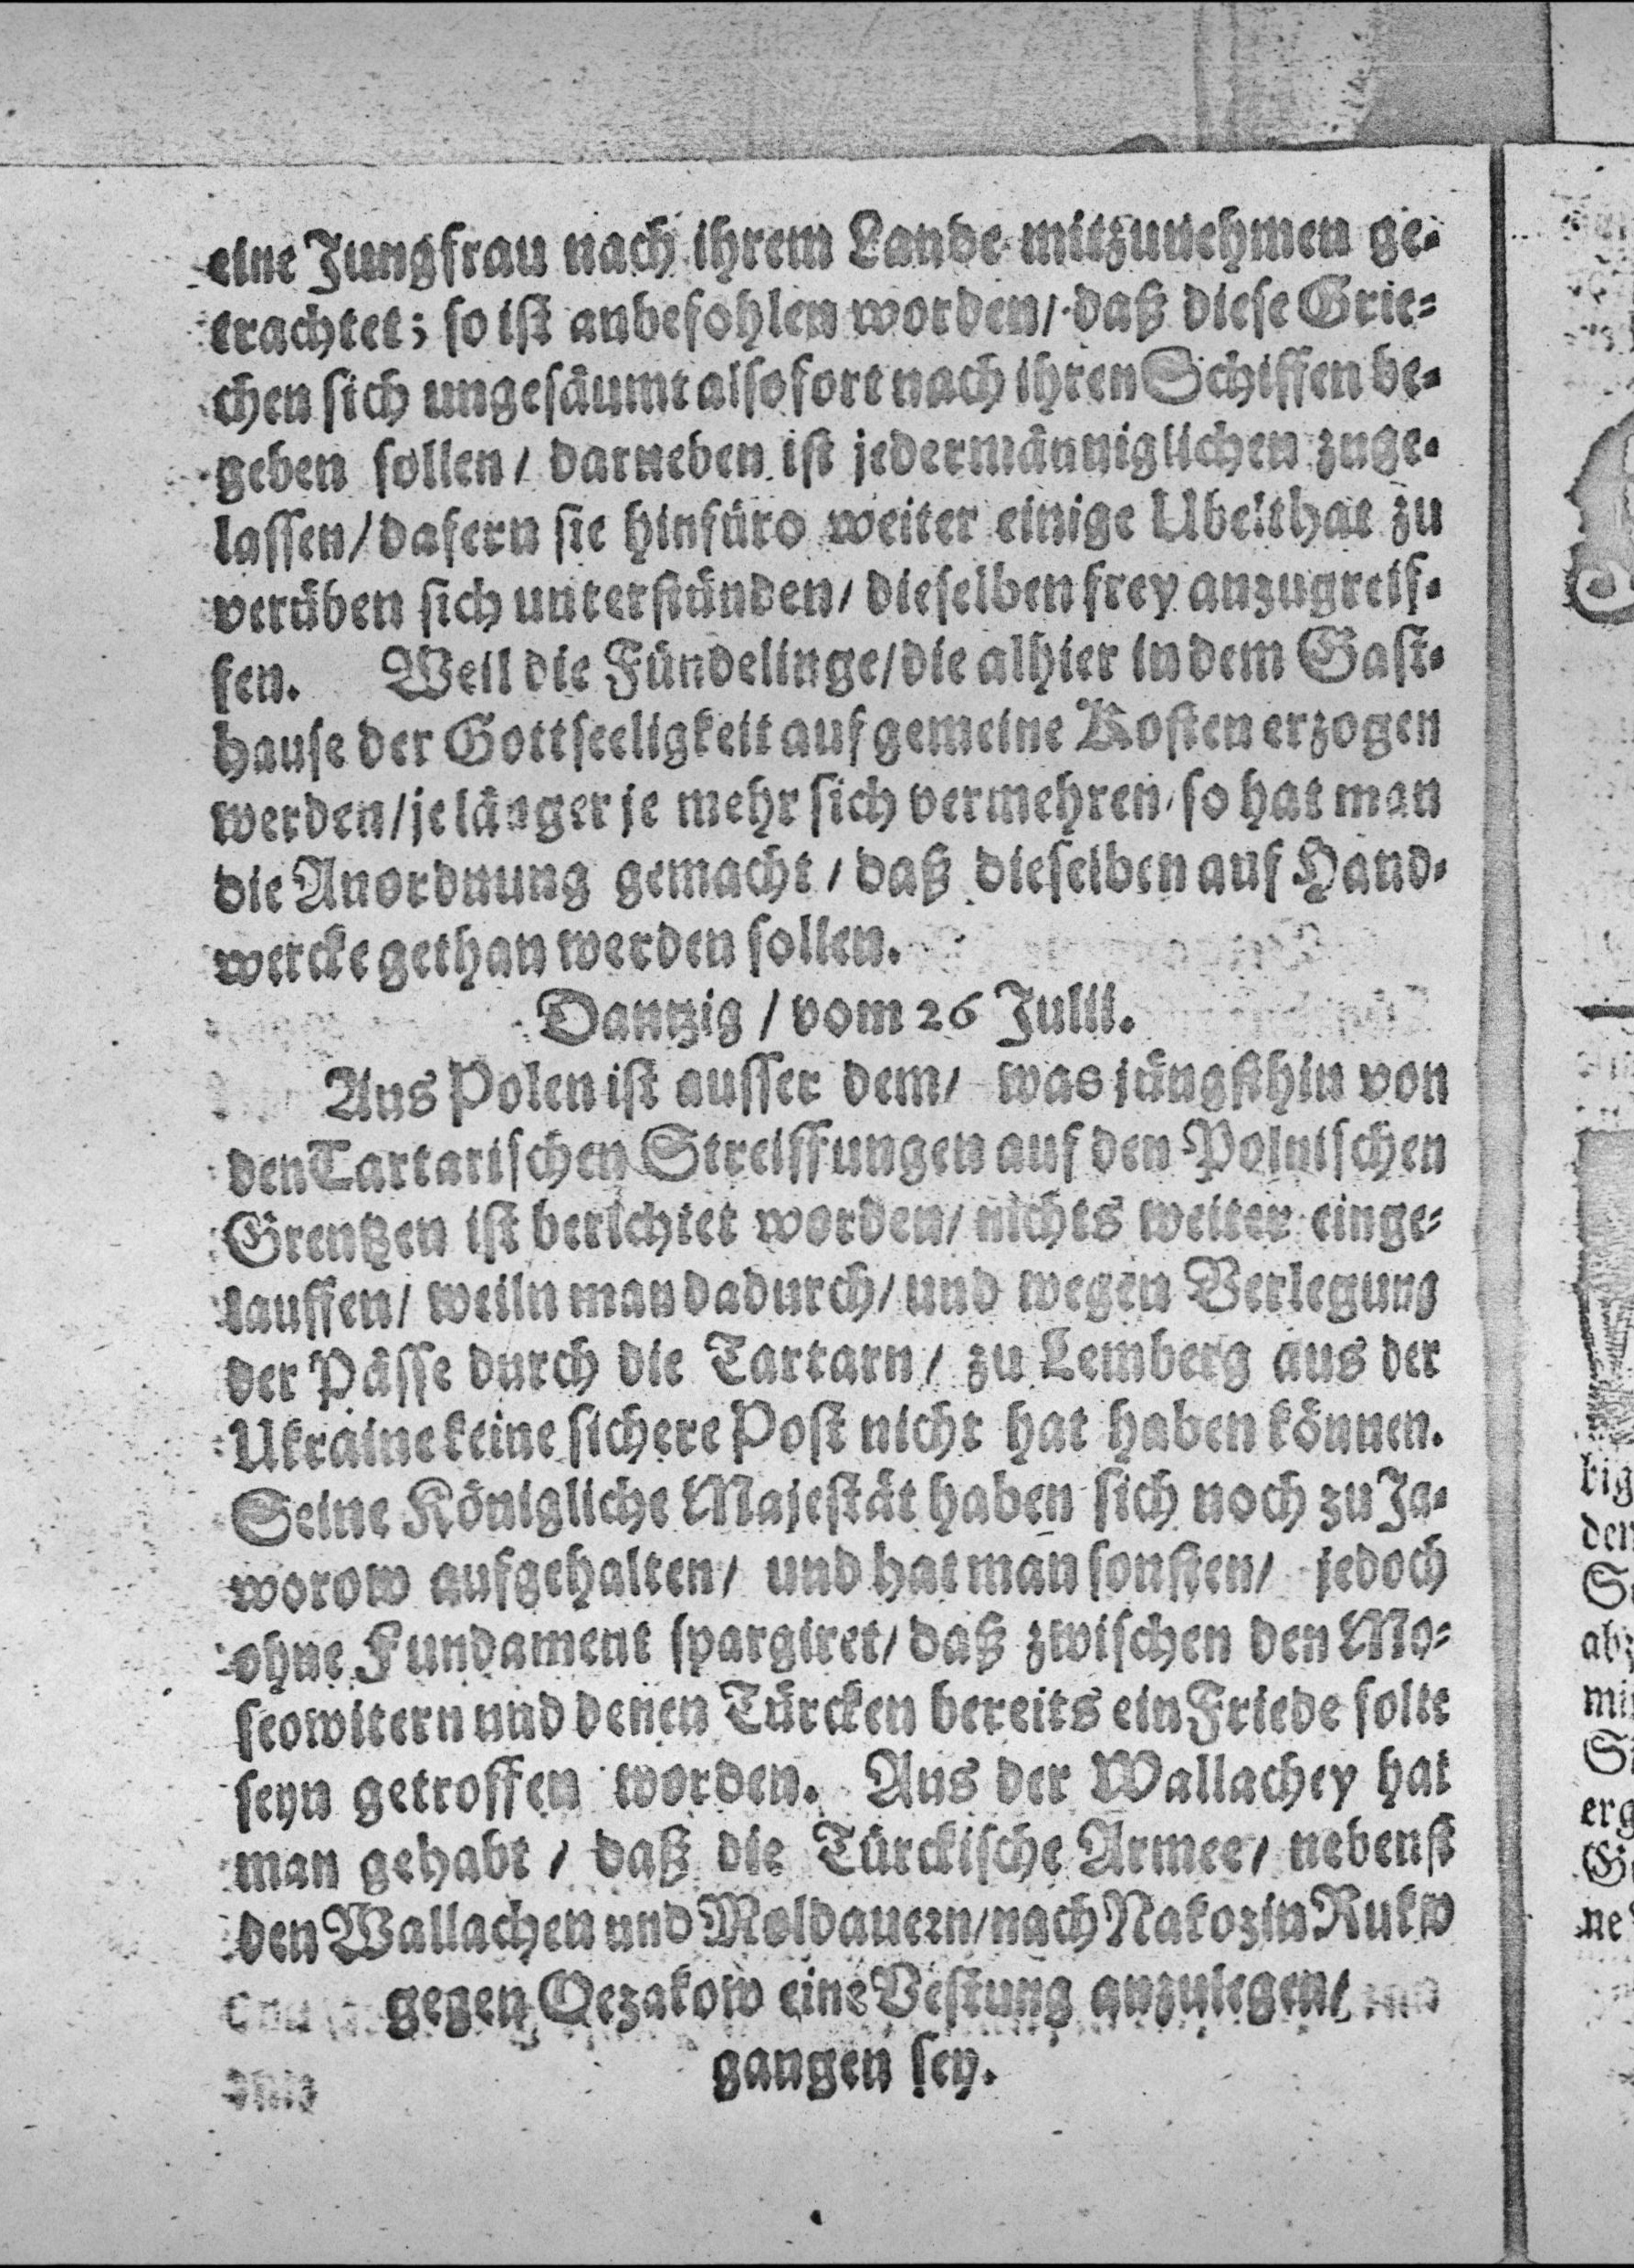 eine Jungfrau nach ihrem Lande mitzunehmen ge-
trachtet; so ist anbefohlen worden/ daß diese Grie-
chen sich ungesäumt alsofort nach ihren Schiffen be-
geben sollen/ darneben ist jedermänniglichen zuge-
lassen/ dafern sie hinfüro weiter einige Ubelthat zu
verüben sich unterstünden/ dieselben frey anzugreif-
fen. Weil die Fündelinge/ die alhier in dem Gast-
hause der Gottseeligkeit auf gemeine Kosten erzogen
werden/ je länger je mehr sich vermehren/ so hat man
die Anordnung gemacht/ daß dieselben auf Hand-
wercke gethan werden sollen.
Dantzig / vom 26 Julii.
Aus Polen ist ausser dem/ was jüngsthin von
den Tartarischen Streiffungen auf den Polnischen
Grentzen ist berichtet worden/ nichts weiter einge-
lauffen/ weiln man dadurch/ und wegen Verlegung
der Pässe durch die Tartarn/ zu Lemberg aus der
Ukraine keine sichere Post nicht hat haben können.
Seine Königliche Majestät haben sich noch zu Ja-
worow aufgehalten/ und hat man sonsten/ jedoch
ohne Fundament spargiret/ daß zwischen den Mo-
scowitern und denen Türcken bereits ein Friede solte
seyn getroffen worden. Aus der Wallachey hat
man gehabt / daß die Türckische Armee/ nebenst
den Wallachen und Moldauern/ nach Nakozin Rukw
gegen Oezakow eine Vestung anzulegen/
gangen sey.